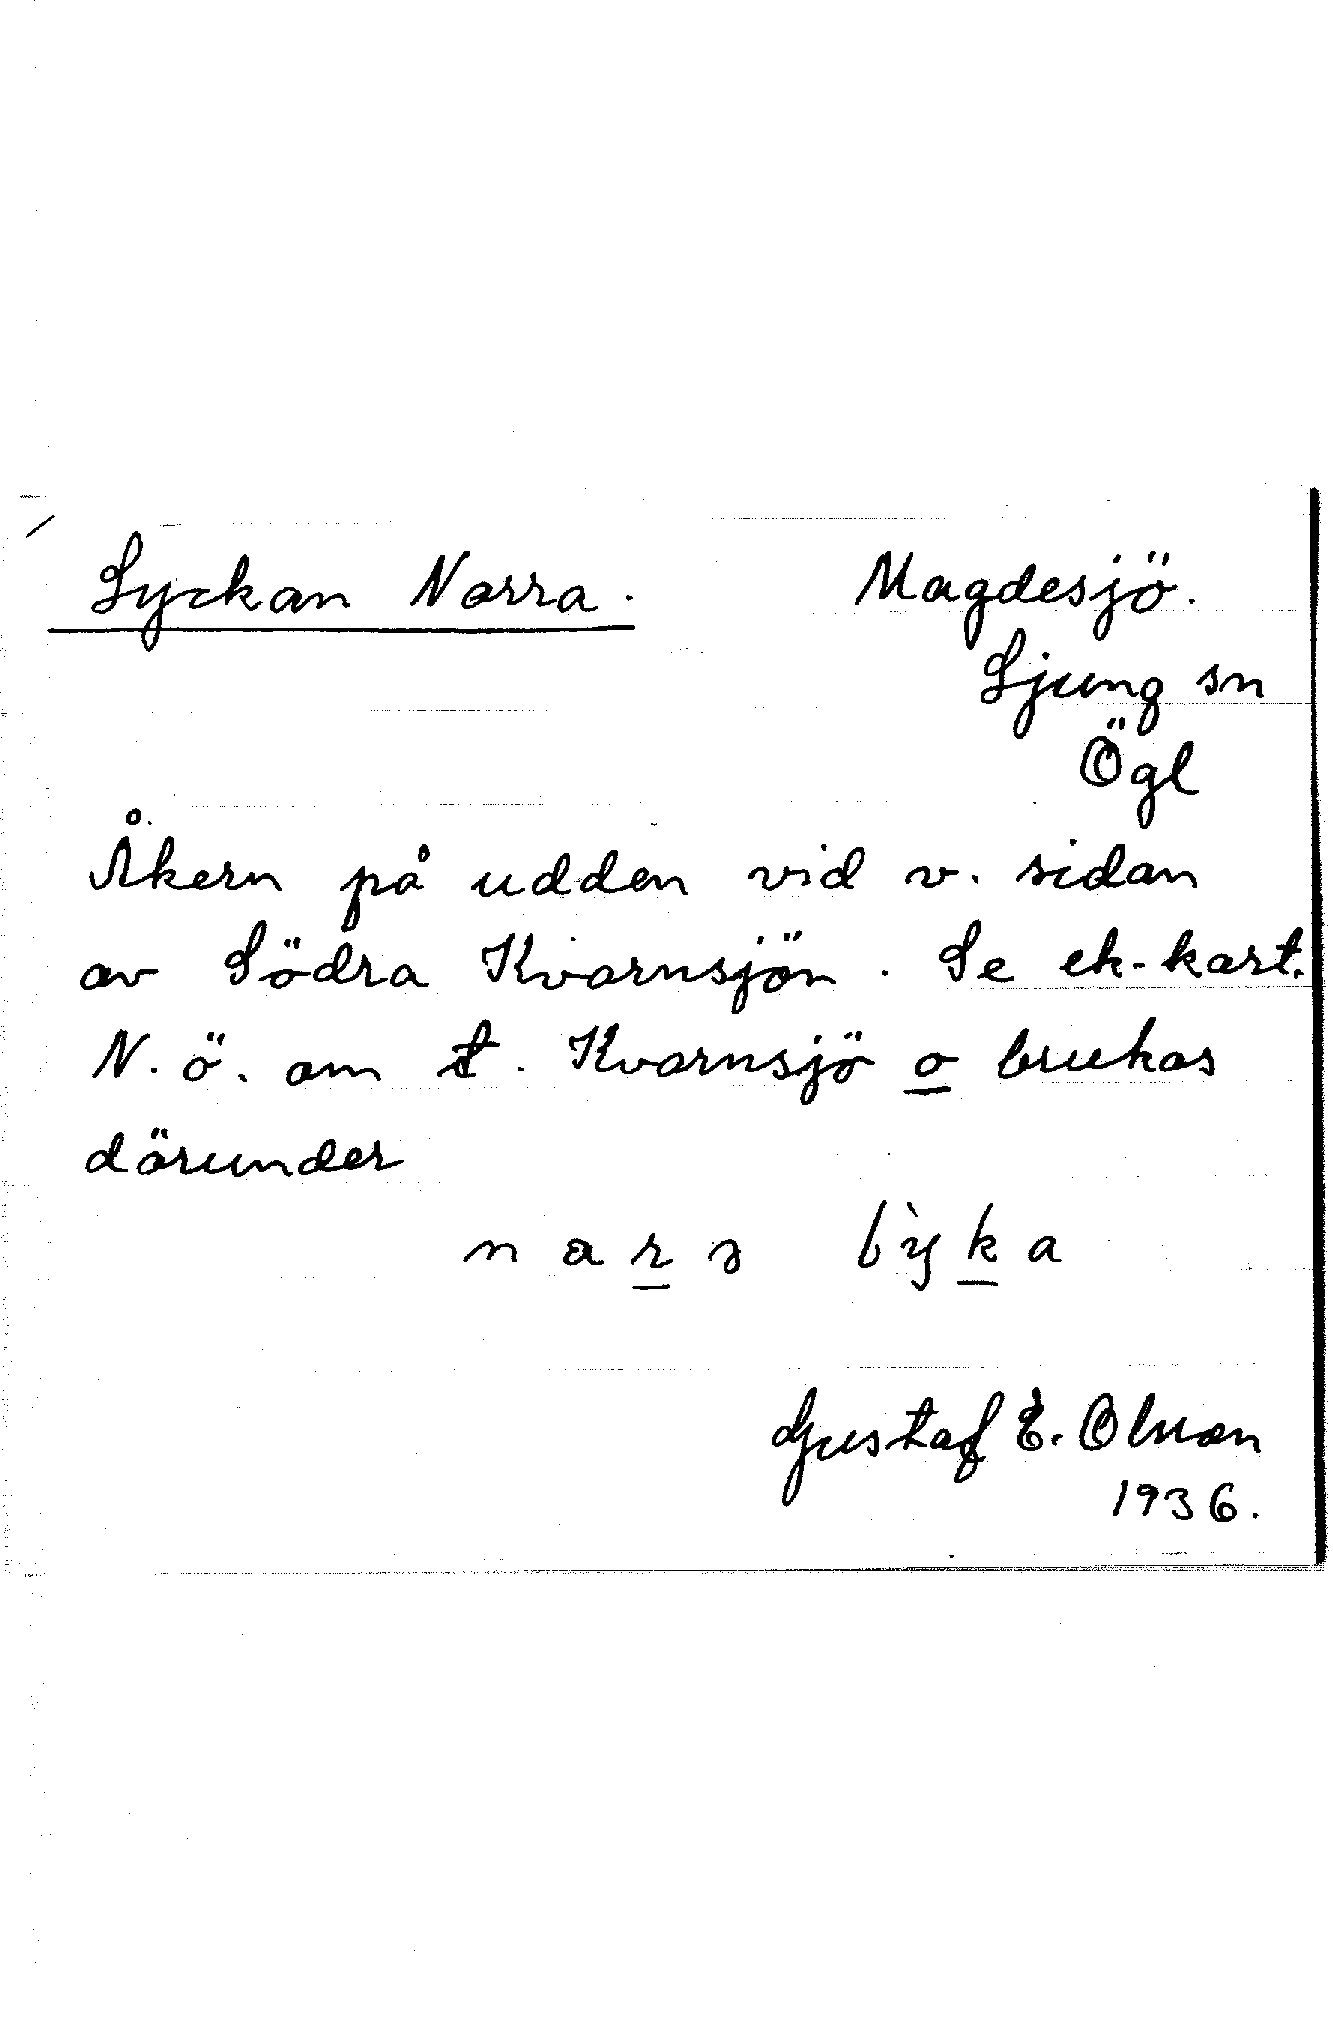 Lyckan Norra.
Magdesjö.
Ljung sn
Ögl
Åkern på udden vid v. sidan
av Södra Kvarnsjön. Se ek-kart.
N.ö. om t. Kvarnsjö o brukas
därunder
Gustaf E. Olsson
1936.